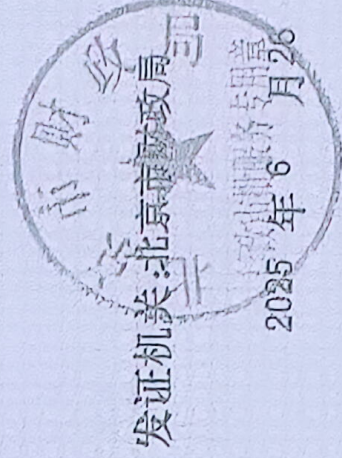 发证机关:北京市财政局
2025 年 6 月 26